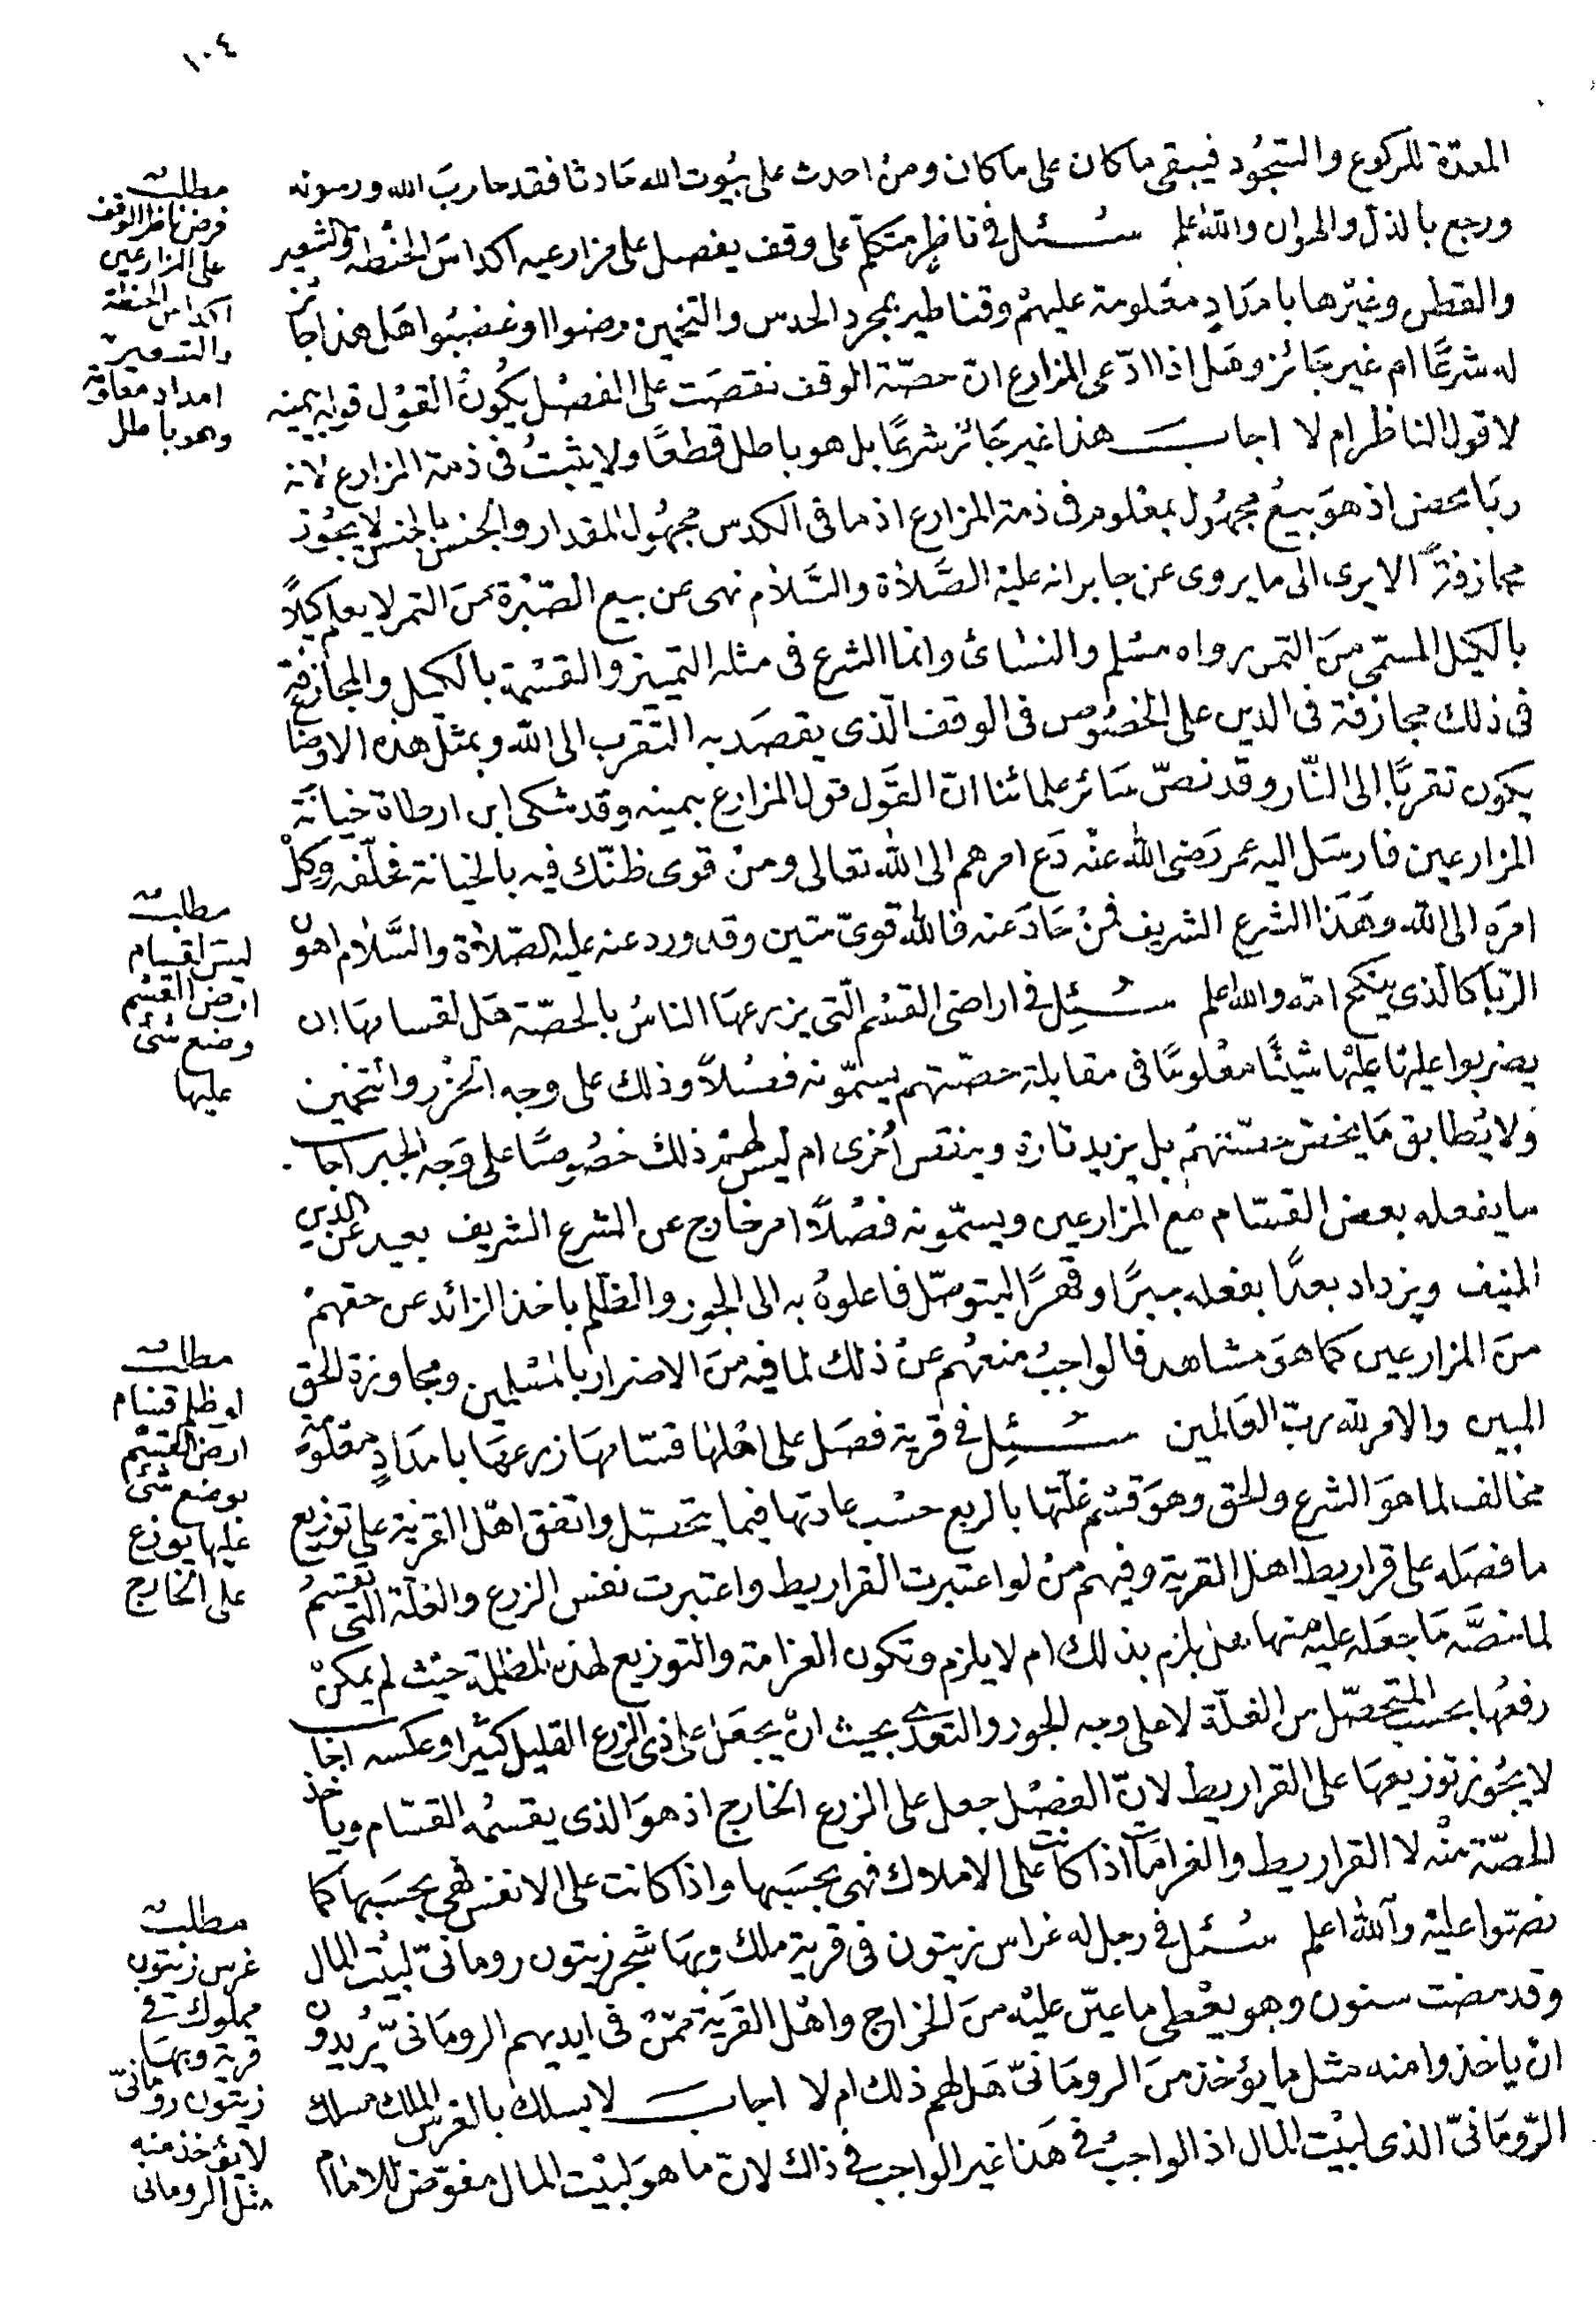 ١٠٤
المعدّة للركوع والسّجُود فيبقى ما كان على ما كان ومن احدث على بيُوت الله حَادثا فقد حاربَ الله ورسوله
ورجع بالذل والهوان والله اعلم سُئل في ناظرٍ متكلّم على وقف يفصل على مزارعيه اكداسَ الحنطة والشعير
والقطن وغيرها بامدَادٍ معْلومة عليهمْ وقناطير بمجرد الحدس والتخمين رضوا او غضبُوا هَل هذا جائز
له شرعًا ام غير جَائز وهَل اذا ادّعى المزارع انّ حصّة الوقف نقصَت على الفصْل يكُونُ القوْل قوله بيمينه
لا قول الناظر ام لا اجابَ هذا غير جَائز شرعًا بل هو باطل قطعًا ولا يثبتُ في ذمة المزارع لانه
ربَا محض اذ هوَ بيعُ مجهُول بمعْلوم في ذمة المزارع اذ ما في الكدس مجهُول المقدار والجنس بالجنس لا يجُوز
مجازفةً الا يرى الى ما يروى عن جابر انه عليْه الصَّلاة والسَّلام نهى عن بيع الصّبْرة منَ التمر لا يعلم كيلًا
بالكيْل المسمّى منَ التمر رواه مسْلم والنسَائي وانما الشرع في مثله التميز والقسْمة بالكيل والمجازفة
في ذلك مجازفة في الدين على الخصُوص في الوقف الّذي يقصَد به التّقرب الى الله وبمثل هذه الاوضاع
يكون تقربًا الى النّار وقد نصّ سَائر علمائنا انّ القَول قول المزارع بيمينه وقد شكى ابن ارطاة خيانَة
المزارعين فارسَل اليه عمر رَضي الله عنْه دَع امرهم الى الله تعالى ومنْ قوى ظنّك فيه بالخيانة فحلّفه وكلْ
امرَه الى الله وهَذا الشرع الشريف فمنْ حَادَ عنه فالله قويّ متين وقد ورد عنه عليه الصّلاة والسَّلام اهون
الرّبَا كالّذي ينكح امّه والله اعلم سُئِل في اراضي القسْم الّتي يزرعهَا الناسُ بالحصّة هَل لقسامهَا ان
يضربوا عليْها شيئًا معْلومًا في مقابلة حصّتهم يسمّونه فصْلاً وذلك على وجه الحَزْر والتخمين
ولا يُطابق مَا يخصّ حصّتهمْ بل يزيد تارة وينقص اُخرى ام ليس لهُمْ ذلك خصُوصًا على وَجه الجبر اجابَ
ما يفعله بعض القسّام مع المزارعين ويسمّونه فصْلاً امر خارج عن الشرع الشريف بعيد عن الدين
المنيف ويزداد بعدًا بفعله جبرًا وقهرًا ليتوصّل فاعلوهُ به الى الجور والظلم باخذ الزائد عن حقهمْ
منَ المزارعين كما هوَ مشاهد فالواجبُ منعهُم عنْ ذلك لما فيه منَ الاضرار بالمسْلمين ومجاوزة الحق
المبين والامر لله ربّ العَالمين سُئِل في قرية فصَل على اهْلهَا قسّامهَا زرعهَا بامدَادٍ معْلومة
مخالف لما هوَ الشرع والحق وهوَ قسْم غلّتها بالربع حسْب عادتها فيما يتحصّل واتفق اهْل القرية على توزيع
ما فصَله على قراريط اهْل القرية وفيهم منْ لو اعتبرت القراريط واعتبرت نفس الزرع والغلّة التي تقسَمُ
لما خصَّه مَا جعَله عليْه منها هل يلزم بذلك ام لا يلزم وتكون الغرامة والتوزيع لهذه المظلمة حيْث لم يمكنْ
رفعُها بحسب المتحصّل من الغلّة لا على وجه الجور والتعدّي بحيث انْ يجعَل على ذي الزرع القليل كثيرا وعكسه اجابَ
لا يجُوز توزيعهَا على القراريط لانّ الفصْل جعل على الزرع الخارج اذ هوَ الذي يقسمُه القسّام وياخذ
الحصّة منْه لا القراريط والغرامَات اذا كانت على الاملاك فهي بحسَبها واذا كانت على الانفس فهي بحسَبها كما
نصّوا عليْه والله اعلم سُئل في رجل له غراس زيتون في قرية ملك وبهَا شجر زيتون رومانيّ لبيْت المال
وقد مضت سنون وهو يعْطي ما عيّن عليْه منَ الخراج واهْل القَرْية ممّنْ في ايديهم الرومَانيّ يُريدون
انْ ياخذوا منه مثل ما يؤخذ منَ الرومَانيّ هَل لهم ذلك ام لا اجابَ لا يسلك بالغرس الملك مسلك
الرّومَانيّ الذي لبيْت المال اذ الواجبُ في هَذا غير الواجب في ذاك لانّ ما هوَ لبيْت المال مفوّض للامام
مطلب
فرض ناظر الوقف
على المزارعين
اكداس الحنطة
والشعير
امداد معلومة
وهو باطل
مطلب
ليسَ لقسام
ارض القسْم
وضع شئ
عليها
مطلب
لو ظلم قسام
ارض القسْم
بوضع شئ
عليها يوزع
على الخارج
مطلب
غرس زيتون
مملوك في
قرية وبهَا
زيتون رومانيّ
لا يؤخذ منه
مثل الروماني